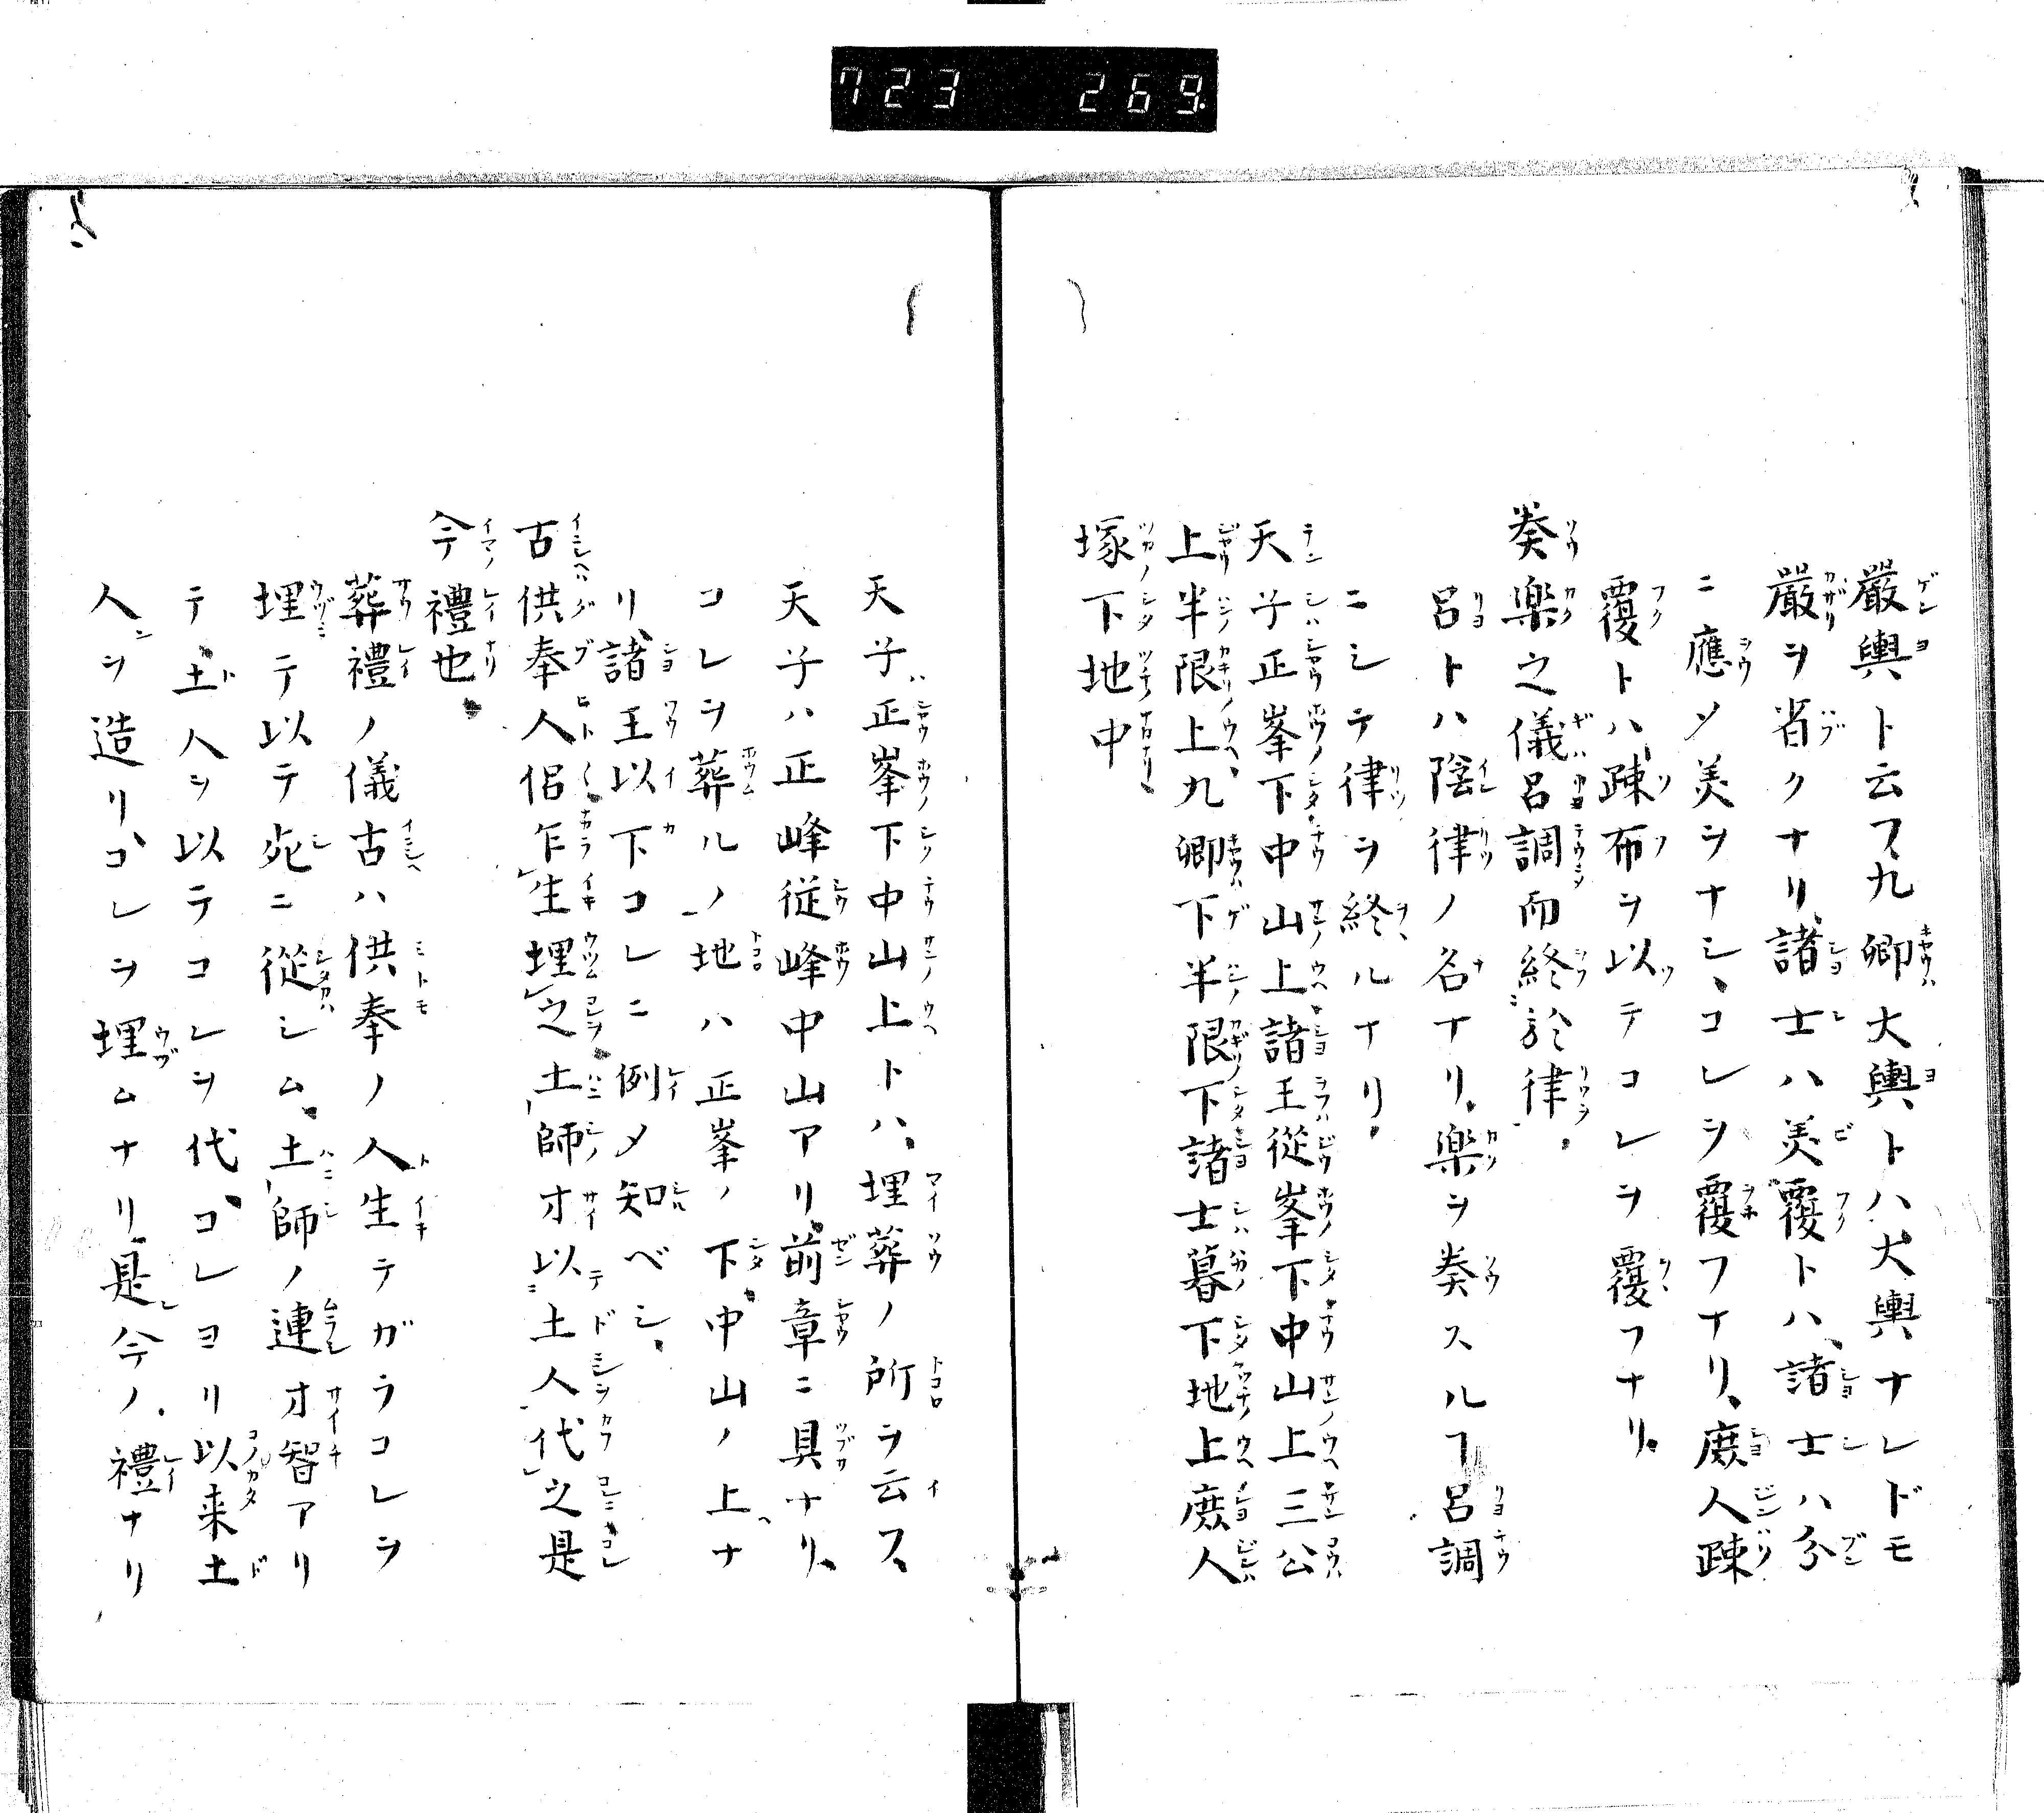 723 269.
嚴輿ト云フ九卿大輿トハ大輿ナレドモ
嚴ヲ省クナリ、諸士ハ美覆トハ、諸士ハ分
ニ應メ美ヲナシ、コレヲ覆フナリ、庶人踈
覆トハ踈布ヲ以テコレヲ覆フナリ。
奏樂之儀呂調而終於律。
呂トハ陰律ノ名ナリ。樂ヲ奏スルヿ呂調
ニシテ律ヲ終ルナリ。
天子正峯下中山上諸王從峯下中山上三公
上半限上九卿下半限下諸士墓下地上庶人
塚下地中
天子正峯下中山上トハ、埋葬ノ所ヲ云フ、
天子ハ正峰従峰中山アリ、前章ニ具ナリ、
コレヲ葬ルノ地ハ正峯ノ下中山ノ上ナ
リ、諸王以下コレニ例メ知ベシ、
古供奉人侶乍生埋之土師才以土人代之是
今禮也
葬禮ノ儀古ハ供奉ノ人生テガラコレヲ
埋テ以テ死ニ從シム、土師ノ連才智アリ
テ、土人ヲ以テコレヲ代、コレヨリ以来土
人ヲ造リ、コレヲ埋ムナリ、是今ノ禮ナリ